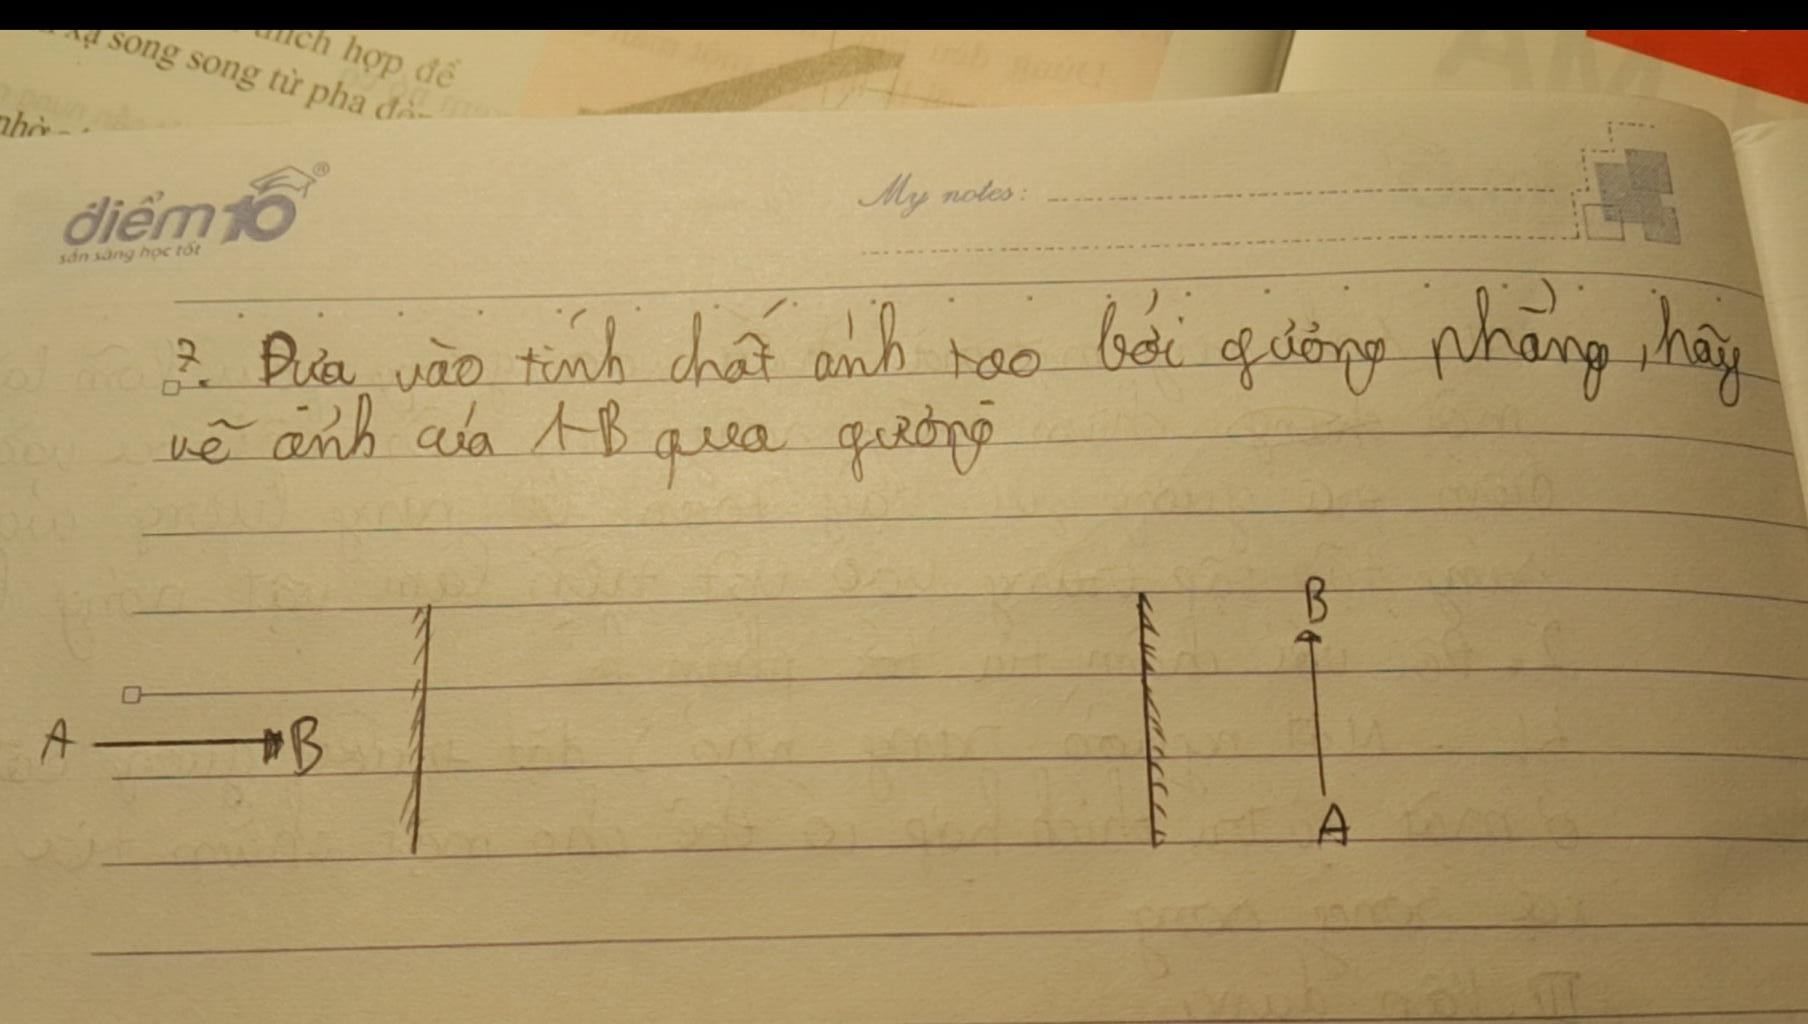 thích hợp để
xạ song song từ pha đèn
nhờ
MA
điểm10®
sẵn sàng học tốt
My notes:
7. Đưa vào tính chất ảnh tạo bởi gương phẳng, hãy
vẽ ảnh của AB qua gương
B
A B
A